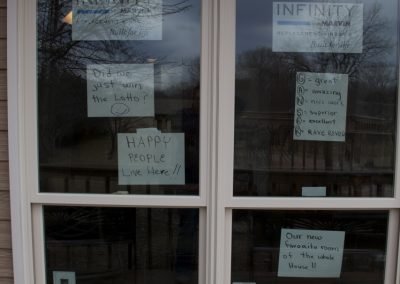 INFINITY
from MARVIN
REPLACEMENT WINDOWS
Built for life
INFINITY
from MARVIN
REPLACEMENT WINDOWS
Built for life
Did we
just win
the Lotto?
HAPPY
PEOPLE
Live Here!!
G = great
A = amazing
N = nice work
S = superior
E = excellent
N = RAVE
Our new
favorite room
of the whole
House!!